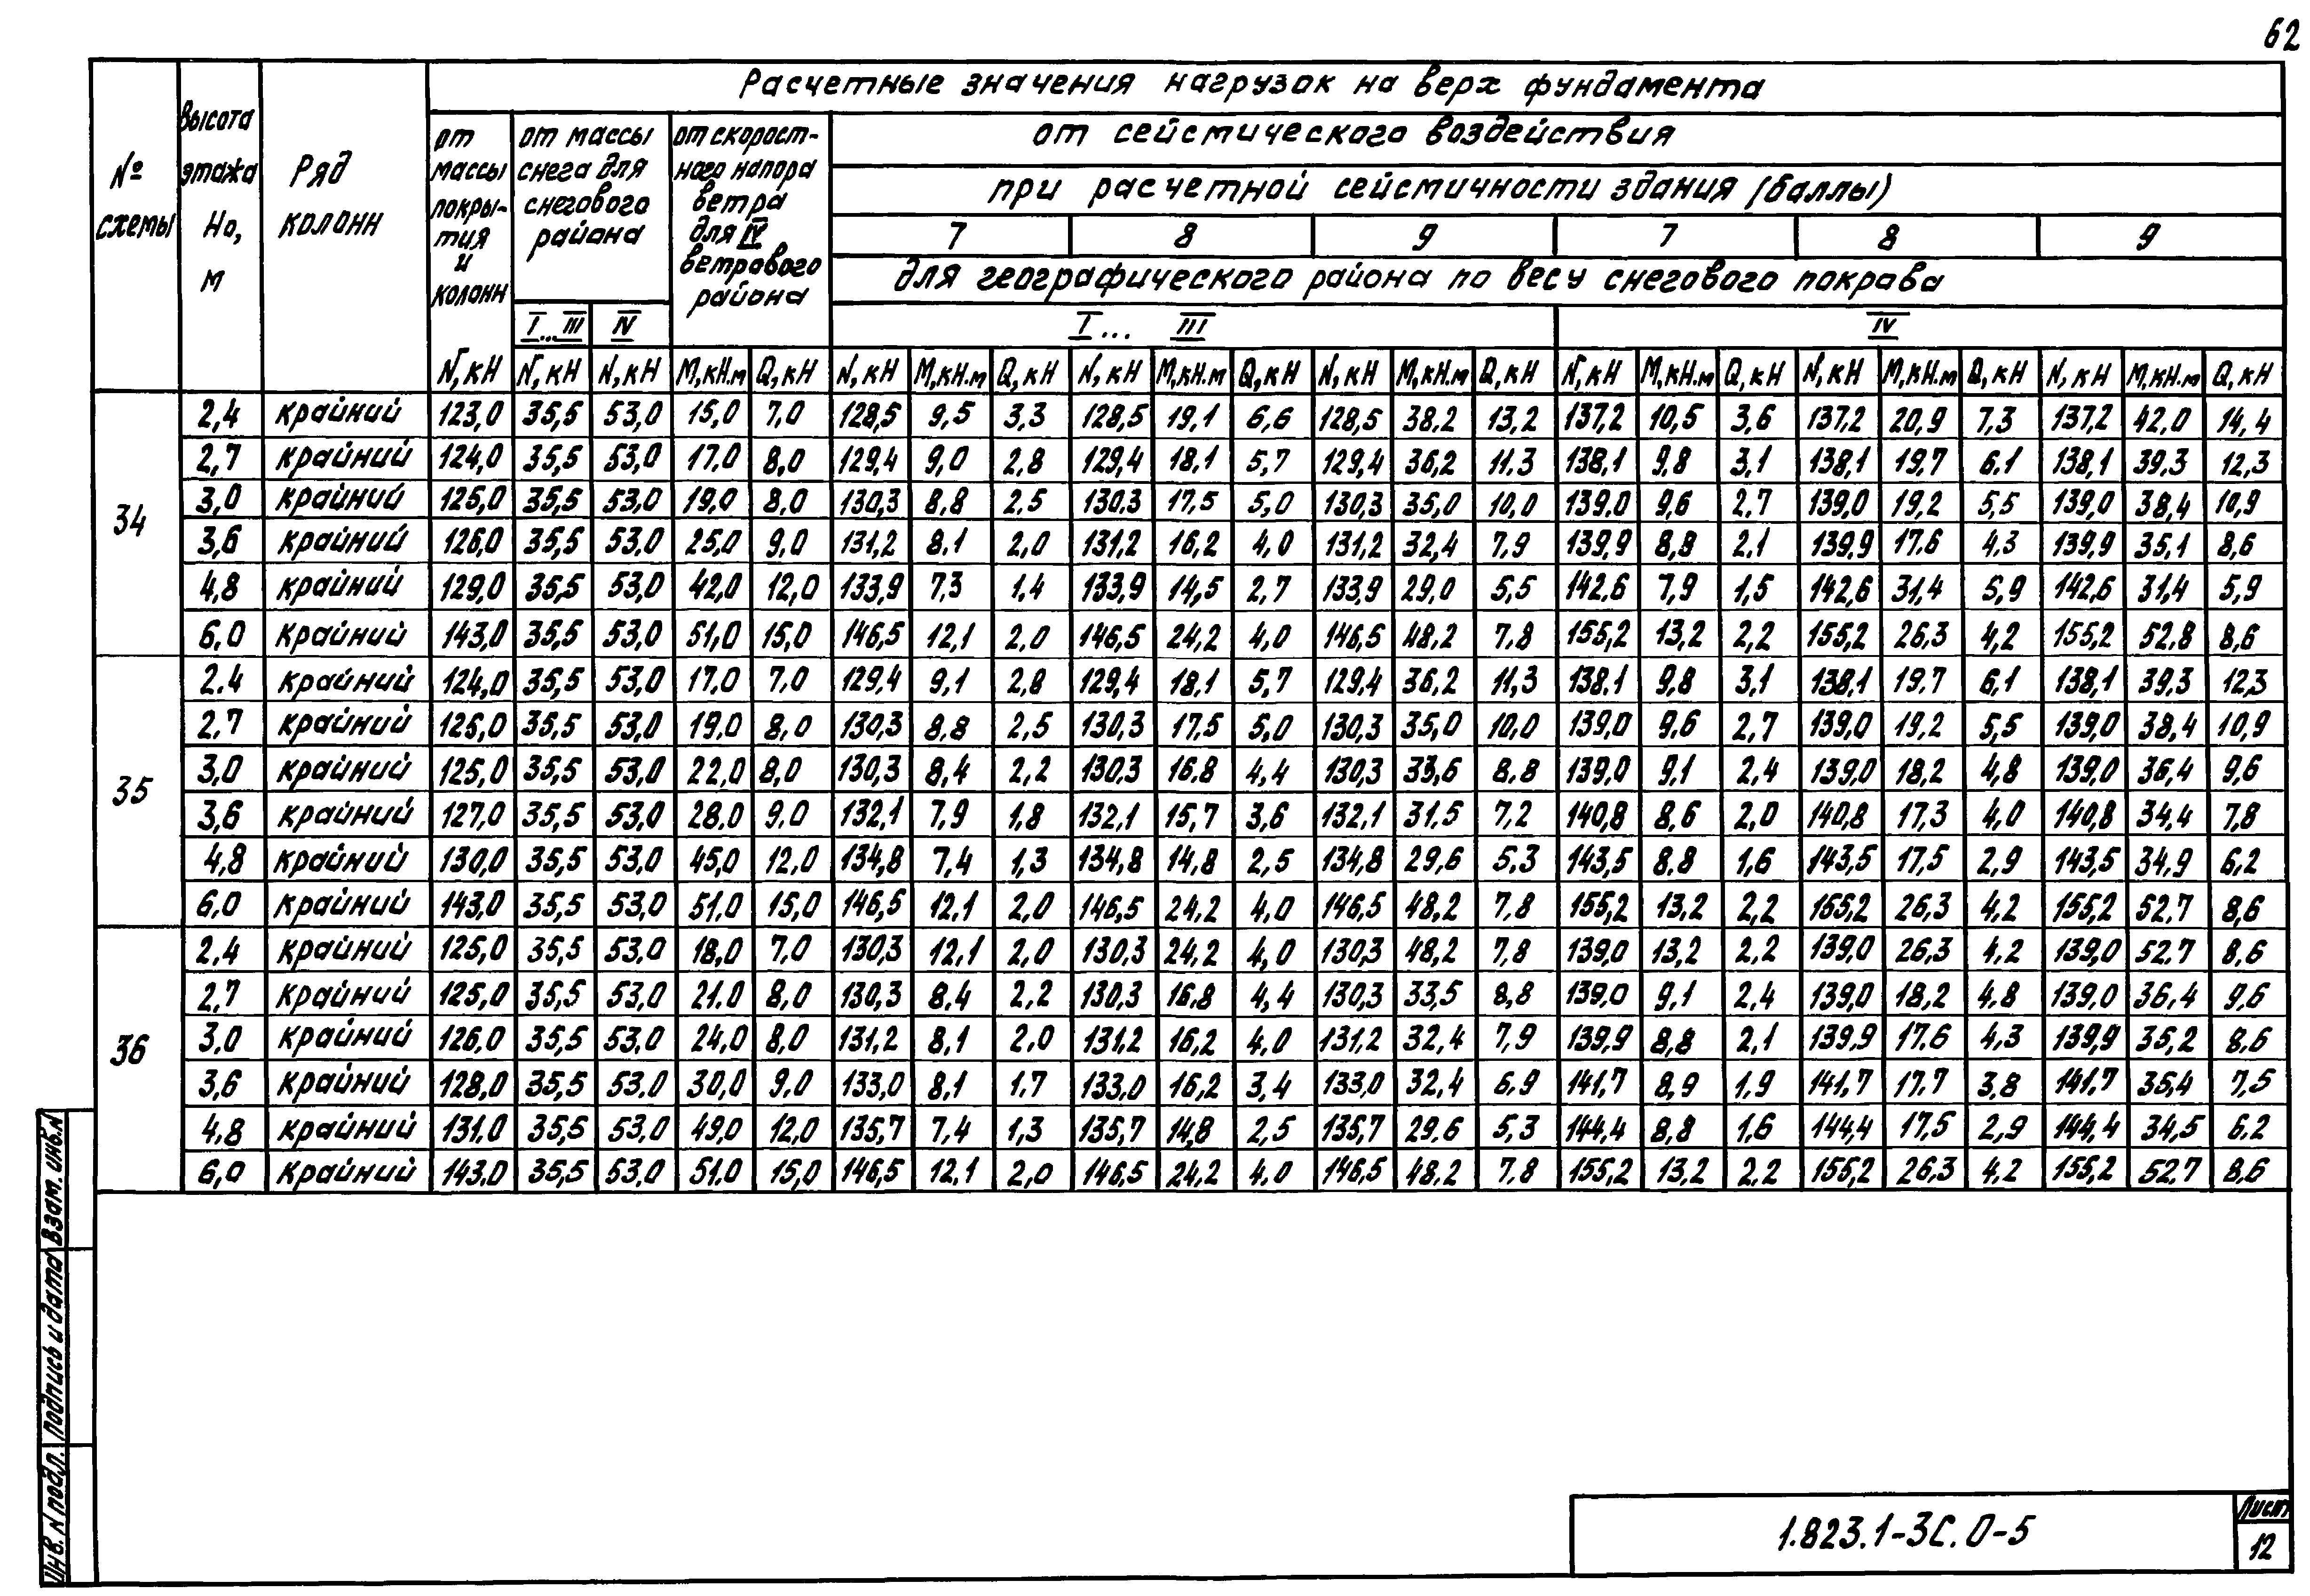 62
Расчетные значения нагрузок на верх фундамента
№ схемы
Высота этажа Но, м
Ряд колонн
от массы покры-тия и колонн
от массы снега для снегового района
от скорост-ного напора ветра для IV ветрового района
от сейсмического воздействия
при расчетной сейсмичности здания (баллы)
7 8 9 7 8 9
для географического района по весу снегового покрова
I...III IV I... III IV
N, кН N, кН N, кН M, кН.м Q, кН N, кН M, кН.м Q, кН N, кН M, кН.м Q, кН N, кН M, кН.м Q, кН N, кН M, кН.м Q, кН N, кН M, кН.м Q, кН N, кН M, кН.м Q, кН
34
2,4 крайний 123,0 35,5 53,0 15,0 7,0 128,5 9,5 3,3 128,5 19,1 6,6 128,5 38,2 13,2 137,2 10,5 3,6 137,2 20,9 7,3 137,2 42,0 14,4
2,7 крайний 124,0 35,5 53,0 17,0 8,0 129,4 9,0 2,8 129,4 18,1 5,7 129,4 36,2 11,3 138,1 9,8 3,1 138,1 19,7 6,1 138,1 39,3 12,3
3,0 крайний 125,0 35,5 53,0 19,0 8,0 130,3 8,8 2,5 130,3 17,5 5,0 130,3 35,0 10,0 139,0 9,6 2,7 139,0 19,2 5,5 139,0 38,4 10,9
3,6 крайний 126,0 35,5 53,0 25,0 9,0 131,2 8,1 2,0 131,2 16,2 4,0 131,2 32,4 7,9 139,9 8,8 2,1 139,9 17,6 4,3 139,9 35,1 8,6
4,8 крайний 129,0 35,5 53,0 42,0 12,0 133,9 7,3 1,4 133,9 14,5 2,7 133,9 29,0 5,5 142,6 7,9 1,5 142,6 31,4 5,9 142,6 31,4 5,9
6,0 крайний 143,0 35,5 53,0 51,0 15,0 146,5 12,1 2,0 146,5 24,2 4,0 146,5 48,2 7,8 155,2 13,2 2,2 155,2 26,3 4,2 155,2 52,8 8,6
35
2,4 крайний 124,0 35,5 53,0 17,0 7,0 129,4 9,1 2,8 129,4 18,1 5,7 129,4 36,2 11,3 138,1 9,8 3,1 138,1 19,7 6,1 138,1 39,3 12,3
2,7 крайний 125,0 35,5 53,0 19,0 8,0 130,3 8,8 2,5 130,3 17,5 5,0 130,3 35,0 10,0 139,0 9,6 2,7 139,0 19,2 5,5 139,0 38,4 10,9
3,0 крайний 125,0 35,5 53,0 22,0 8,0 130,3 8,4 2,2 130,3 16,8 4,4 130,3 33,6 8,8 139,0 9,1 2,4 139,0 18,2 4,8 139,0 36,4 9,6
3,6 крайний 127,0 35,5 53,0 28,0 9,0 132,1 7,9 1,8 132,1 15,7 3,6 132,1 31,5 7,2 140,8 8,6 2,0 140,8 17,3 4,0 140,8 34,4 7,8
4,8 крайний 130,0 35,5 53,0 45,0 12,0 134,8 7,4 1,3 134,8 14,8 2,5 134,8 29,6 5,3 143,5 8,8 1,6 143,5 17,5 2,9 143,5 34,9 6,2
6,0 крайний 143,0 35,5 53,0 51,0 15,0 146,5 12,1 2,0 146,5 24,2 4,0 146,5 48,2 7,8 155,2 13,2 2,2 165,2 26,3 4,2 155,2 52,7 8,6
36
2,4 крайний 125,0 35,5 53,0 18,0 7,0 130,3 12,1 2,0 130,3 24,2 4,0 130,3 48,2 7,8 139,0 13,2 2,2 139,0 26,3 4,2 139,0 52,7 8,6
2,7 крайний 125,0 35,5 53,0 21,0 8,0 130,3 8,4 2,2 130,3 16,8 4,4 130,3 33,5 8,8 139,0 9,1 2,4 139,0 18,2 4,8 139,0 36,4 9,6
3,0 крайний 126,0 35,5 53,0 24,0 8,0 131,2 8,1 2,0 131,2 16,2 4,0 131,2 32,4 7,9 139,9 8,8 2,1 139,9 17,6 4,3 139,9 35,2 8,6
3,6 крайний 128,0 35,5 53,0 30,0 9,0 133,0 8,1 1,7 133,0 16,2 3,4 133,0 32,4 6,9 141,7 8,9 1,9 141,7 17,7 3,8 141,7 35,4 7,5
4,8 крайний 131,0 35,5 53,0 49,0 12,0 135,7 7,4 1,3 135,7 14,8 2,5 135,7 29,6 5,3 144,4 8,8 1,6 144,4 17,5 2,9 144,4 34,5 6,2
6,0 крайний 143,0 35,5 53,0 51,0 15,0 146,5 12,1 2,0 146,5 24,2 4,0 146,5 48,2 7,8 155,2 13,2 2,2 155,2 26,3 4,2 155,2 52,7 8,6
Взам. инв. N
Подпись и дата
Инв. N подл.
1.823.1-3С.0-5
Лист
12